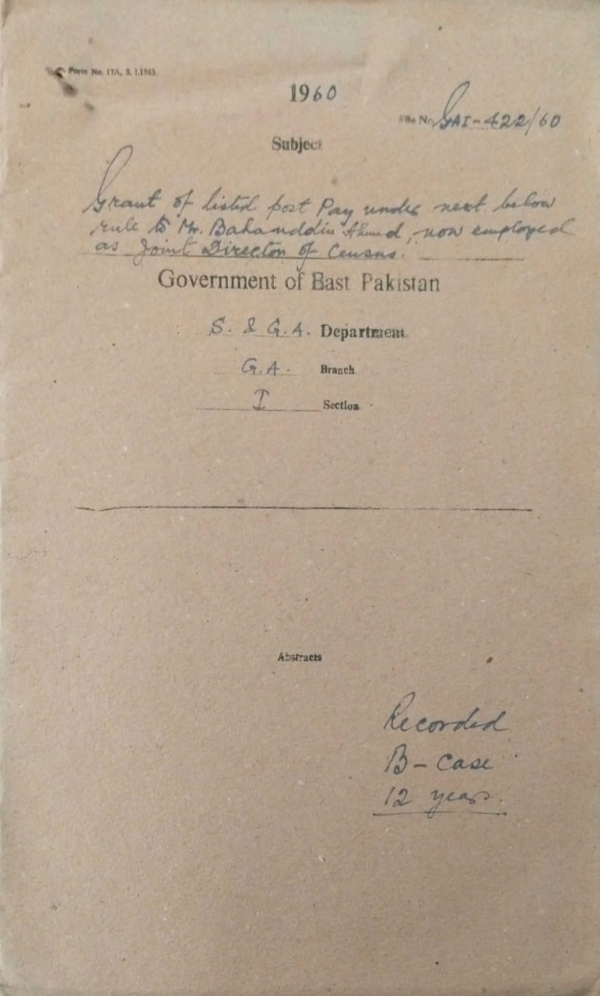 Form No. 17A, S. I.1963.
1960
File No. GAI-422/60
Subject
Grant of listed post Pay under next below
rule to Mr. Bahauddin Ahmed, now employed
as Joint Director of Census.
Government of East Pakistan
S. & G.A. Department
G.A. Branch
I Section
Abstracts
Recorded
B-Case
12 years.